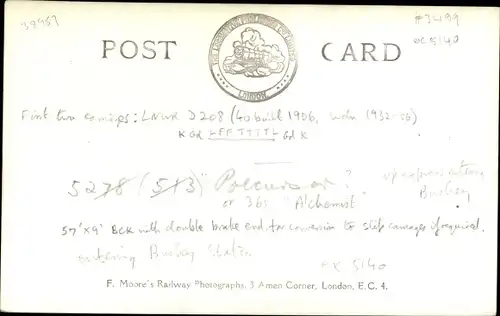 38957
#3499
ex 5140
POST CARD
THE LOCOMOTIVE PUBLISHING CO. LIMITED
LONDON.
First two carriages: LNWR D208 (40 built 1906, wdn 1932-56)
K Gd LFFTTTTL Gd K
5278 (513) "Precursor"?
up express entering
Bushey
or 365 "Alchemist"
57'×9' BCK with double brake end for conversion to slip carriages if required.
entering Bushey Station
ex 5140
F. Moore's Railway Photographs, 3 Amen Corner, London, E.C. 4.